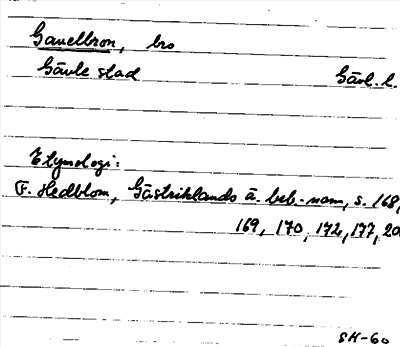 Gavelbron, bro
Gävle stad Gävl. l.
Etymologi:
F. Hedblom, Gästriklands ä. beb.-namn, s. 168,
169, 170, 172, 177, 20
SH-60